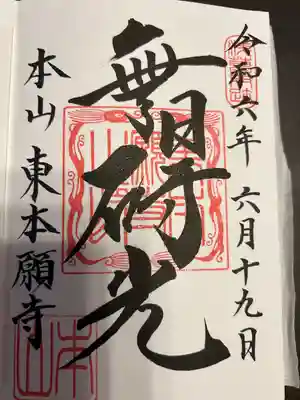 令和六年 六月十九日
無碍光
本山 東本願寺